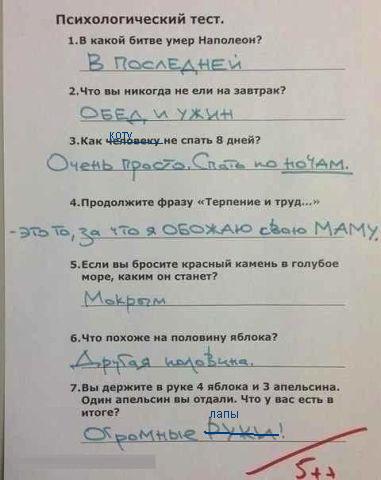 Психологический тест.
1.В какой битве умер Наполеон?
В ПОСЛЕДНЕЙ
2.Что вы никогда не ели на завтрак?
ОБЕД И УЖИН
коту
3.Как человеку не спать 8 дней?
Очень просто. Спать по НОЧАМ.
4.Продолжите фразу «Терпение и труд...»
-ЭТО ТО, за что я ОБОЖАЮ свою МАМУ.
5.Если вы бросите красный камень в голубое
море, каким он станет?
Мокрым
6.Что похоже на половину яблока?
Другая половина.
7.Вы держите в руке 4 яблока и 3 апельсина.
Один апельсин вы отдали. Что у вас есть в
итоге?
лапы
Огромные РУКИ!
5++